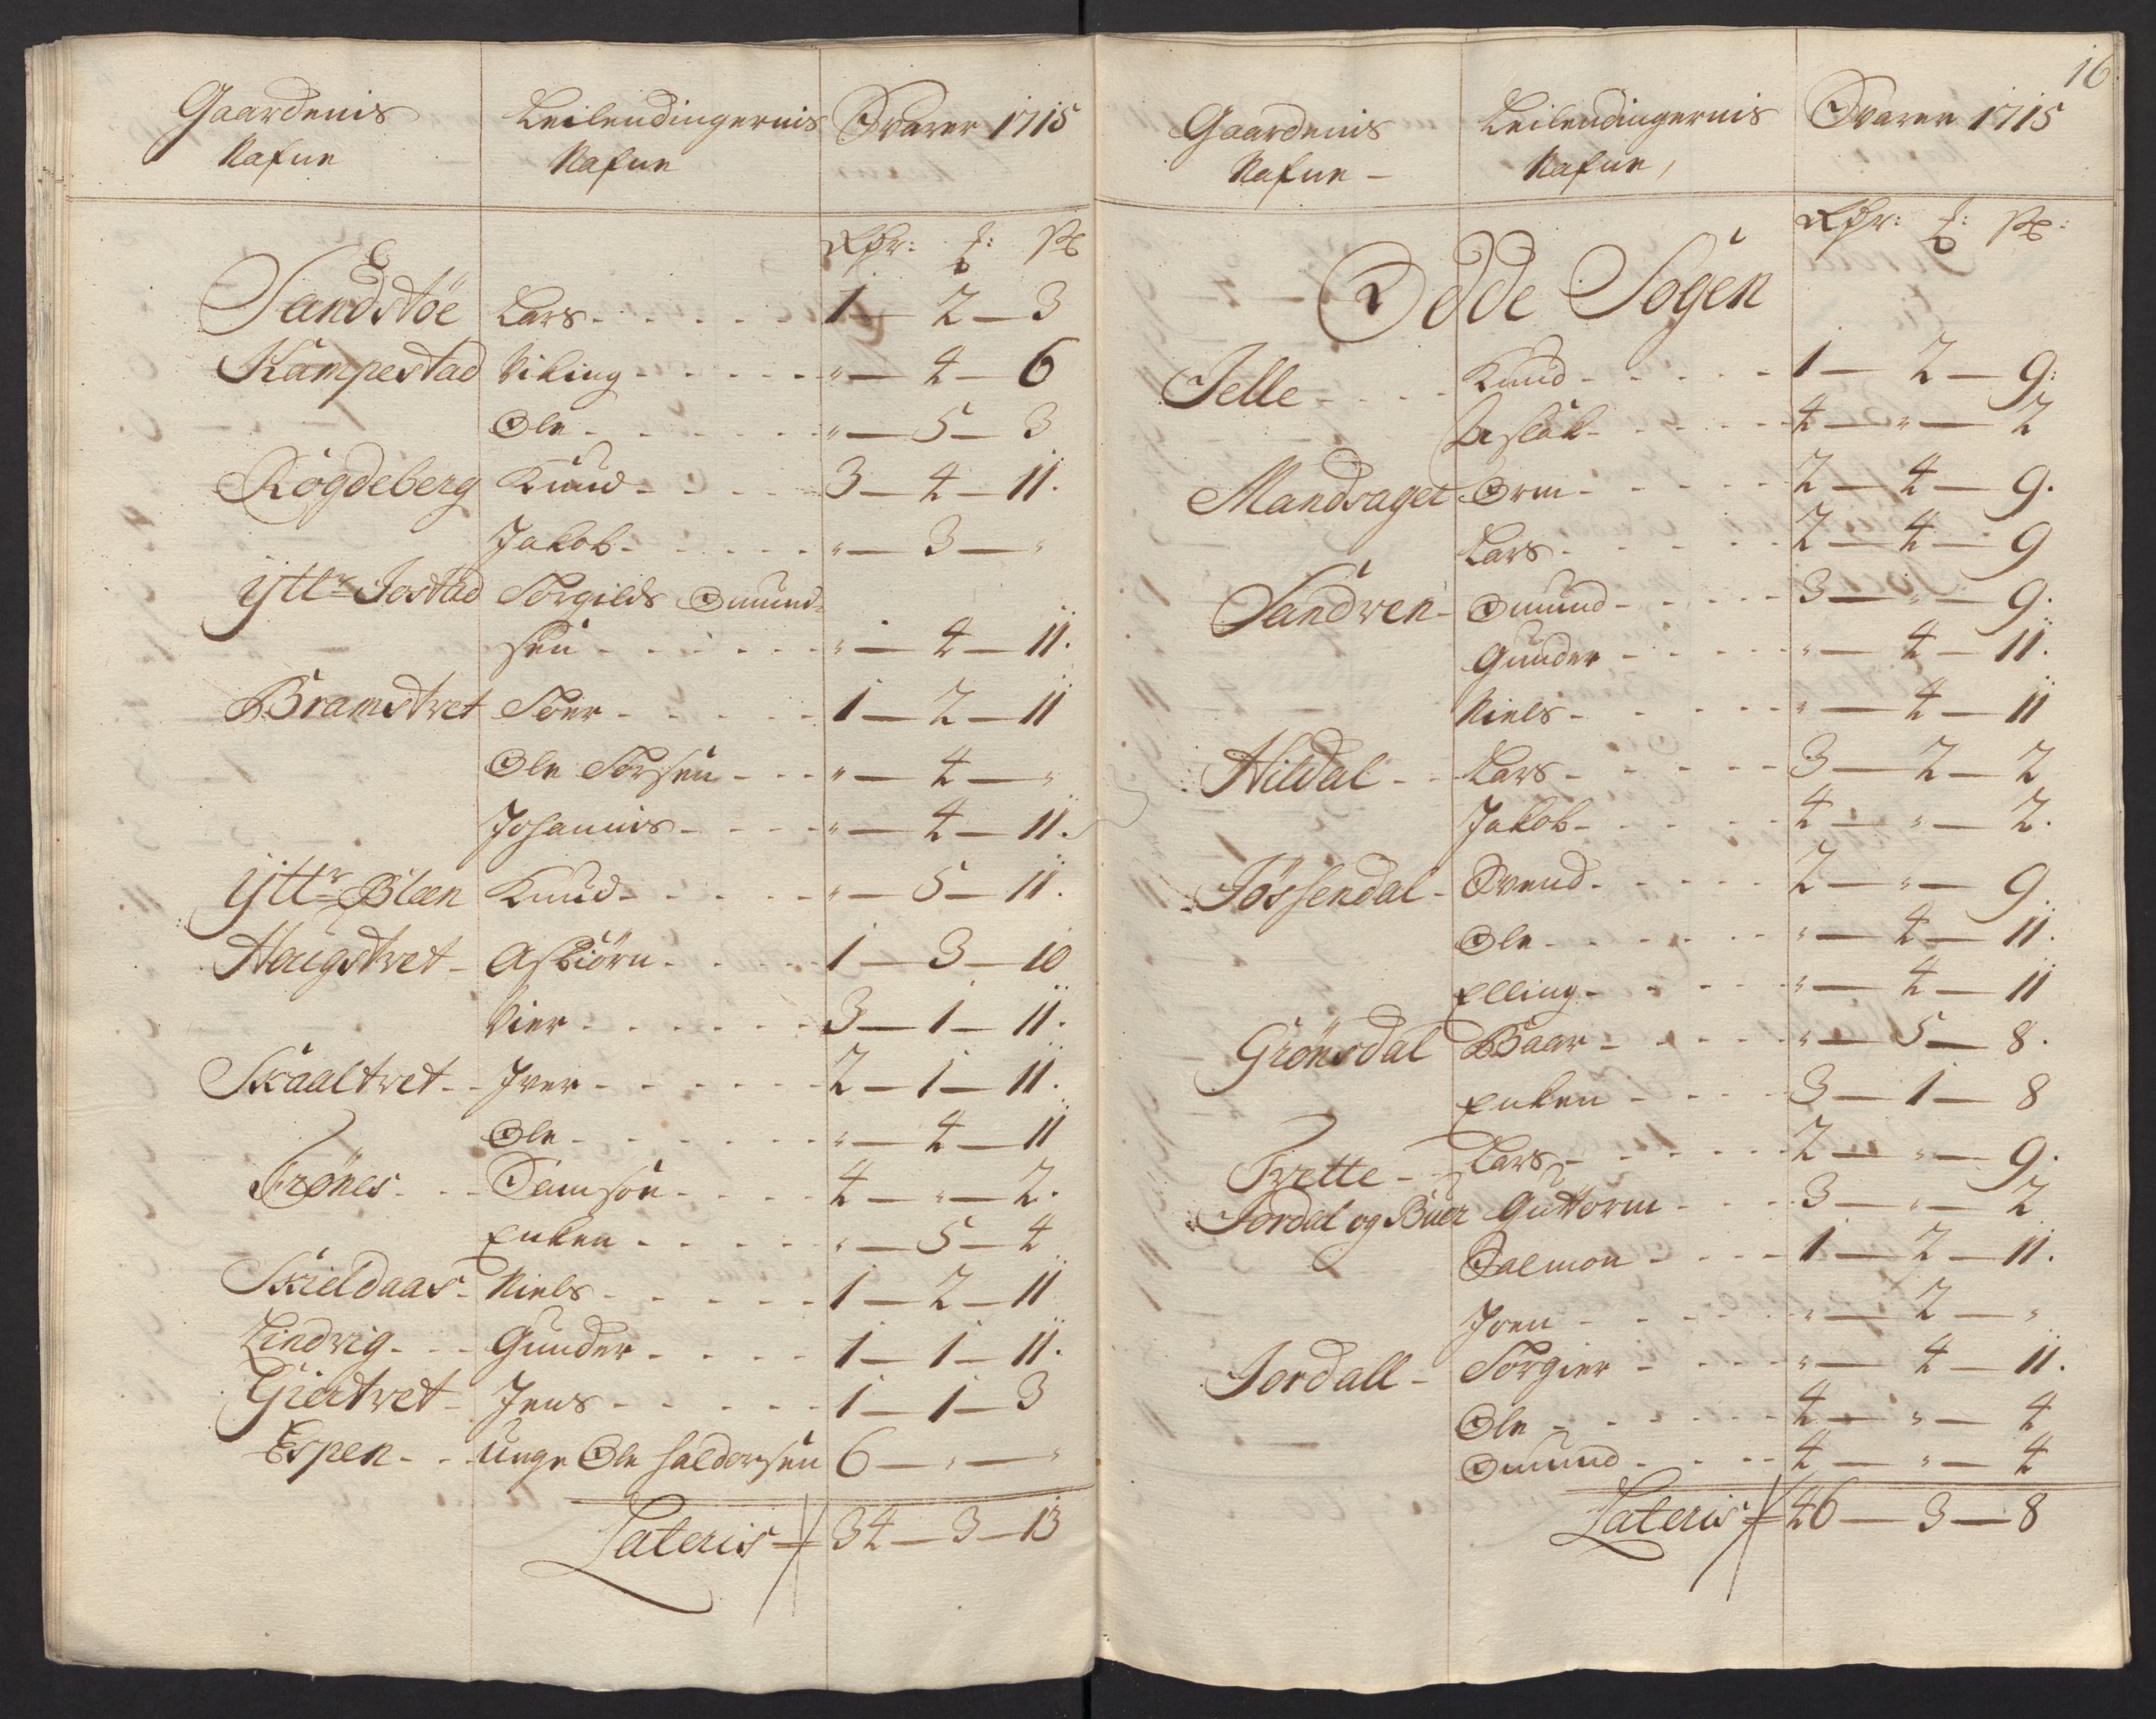 Gaardenis Leilendingernis Svarer 1715
Nafne Nafne
Rdr: ₰: ß
Sandstöe Lars - - - - - 1 — 2 — 3
Kampestad Viking - - - - - " — 4 — 6
Ole - - - - - - " — 5 — 3
Rogdeberg Knud - - - - 3 — 4 — 11.
Jakob - - - - - " — 3 — "
Ytt= Jastad Torgilds Omund=
sen - - - - - " — 4 — 11.
Bramstvet Toer - - - - - 1 — 2 — 11
Ole Torsen - - - " — 4 — "
Johannis - - - - " — 4 — 11.
Ytt= Blæn Knud - - - - - " — 5 — 11.
Haugstvet - Asbiörn - - - - 1 — 3 — 10
Vier - - - - - - 3 — 1 — 11.
Skaaltvet - - Iver - - - - - - 2 — 1 — 11.
Ole - - - - - - " — 4 — 11
Trönes - - - Samson - - - - 4 — " — 2.
Enken - - - - - " — 5 — 4
Skieldaas - Niels - - - - - 1 — 2 — 11
Lindvig - - - Gunder - - - - 1 — 1 — 11.
Giertvet - Jens - - - - - 1 — 1 — 3
Espen - - - Unge Ole Haldorsen 6 — " — "
Lateris 34 — 3 — 13
16
Gaardenis Leilendingernis Svarer 1715
Nafne - Nafne,
Rdr: ₰: ß:
Odde Sogen
Jelle - - - - Knud - - - - - 1 — 2 — 9:
Aslak - - - - - 4 — " — 2
Mandsaget Orm - - - - - 2 — 4 — 9.
Lars - - - - - 2 — 4 — 9
Sandven - Omund - - - - - 3 — " — 9.
Gunder - - - - - " — 4 — 11.
Niels - - - - - " — 4 — 11
Hildal - - Lars - - - - - 3 — 2 — 2
Jakob - - - - - 4 — " — 2.
Jössendal - Svend - - - - - 2 — " — 9
Ole - - - - - - " — 4 — 11.
Elling - - - - - " — 4 — 11
Grönsdal Baar - - - - - " — 5 — 8.
Enken - - - - 3 — 1 — 8
Tvette - - Lars - - - - - 2 — " — 9.
Jordal og Buer Guttorm - - - - 3 — " — 2
Salmon - - - - 1 — 2 — 11.
Joen - - - - - " — 2 — "
Jordall - Torgier - - - - " — 4 — 11.
Ole - - - - - - 4 — " — 4
Omund - - - - 4 — " — 4
Lateris 46 — 3 — 8